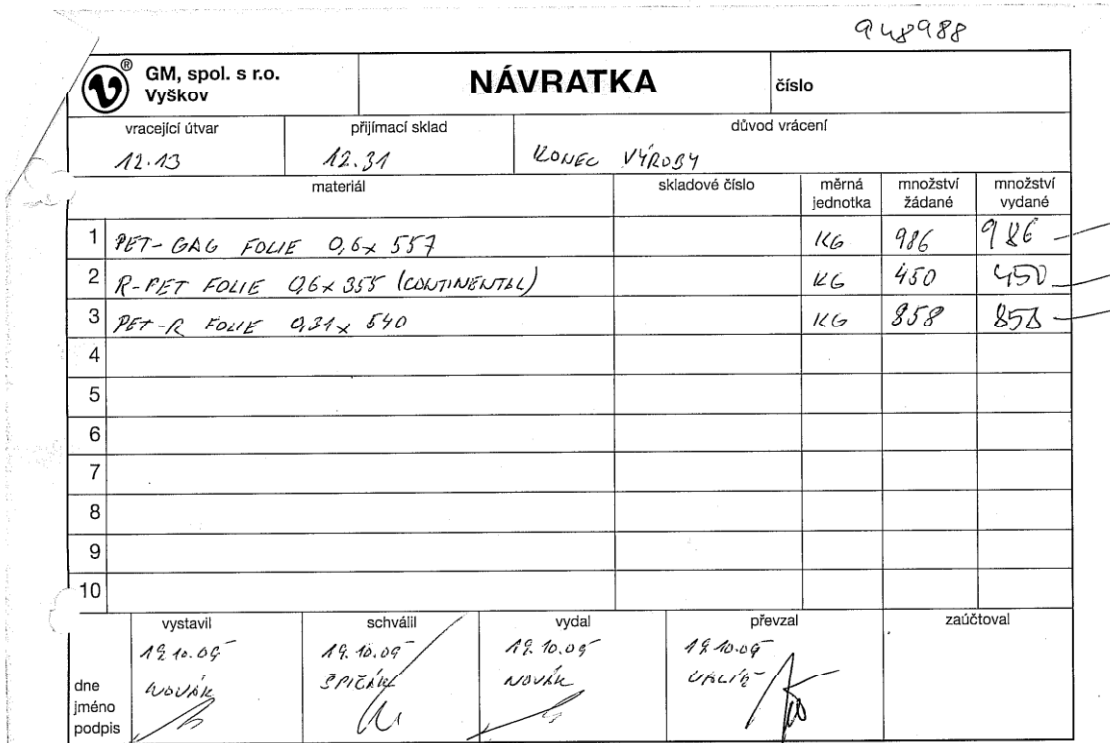 948988
GM, spol. s r.o.
Vyškov
NÁVRATKA
číslo
vracející útvar
přijímací sklad
důvod vrácení
12.13
12.31
KONEC VÝROBY
materiál
skladové číslo
měrná jednotka
množství žádané
množství vydané
1 PET-GAG FOLIE 0,6x 557 KG 986 986
2 R-PET FOLIE 0,6x 355 (CONTINENTAL) KG 450 450
3 PET-R FOLIE 0,31x 540 KG 858 858
4
5
6
7
8
9
10
vystavil
schválil
vydal
převzal
zaúčtoval
19.10.05 19.10.05 19.10.05 19.10.05
dne
jméno
podpis
NOVÁK ŠPIČÁK NOVÁK